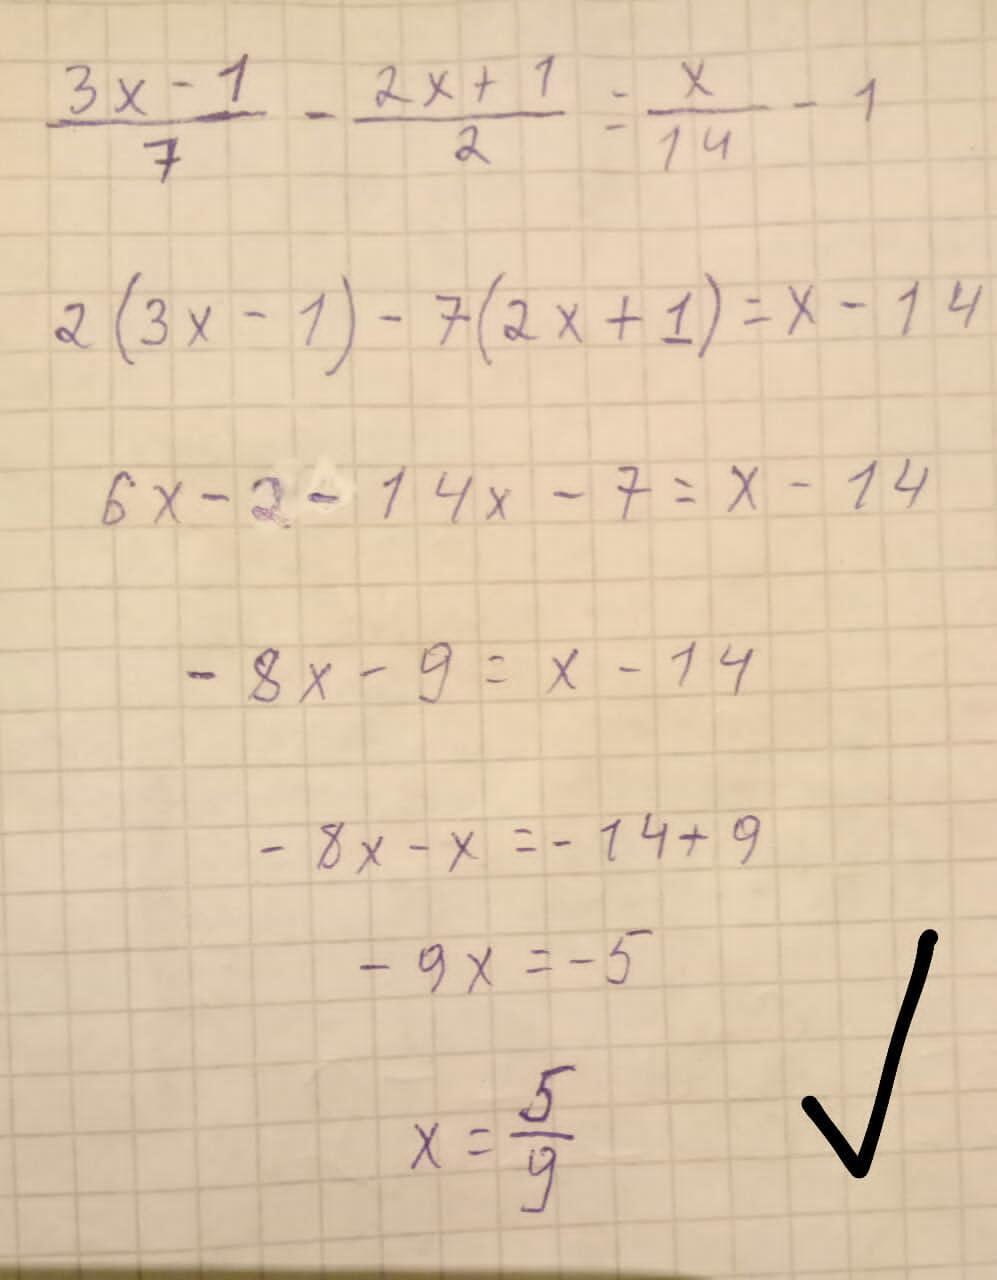 (3x - 1)/7 - (2x + 1)/2 = x/14 - 1
2(3x - 1) - 7(2x + 1) = x - 14
6x - 2 - 14x - 7 = x - 14
- 8x - 9 = x - 14
- 8x - x = - 14 + 9
- 9x = - 5
x = 5/9